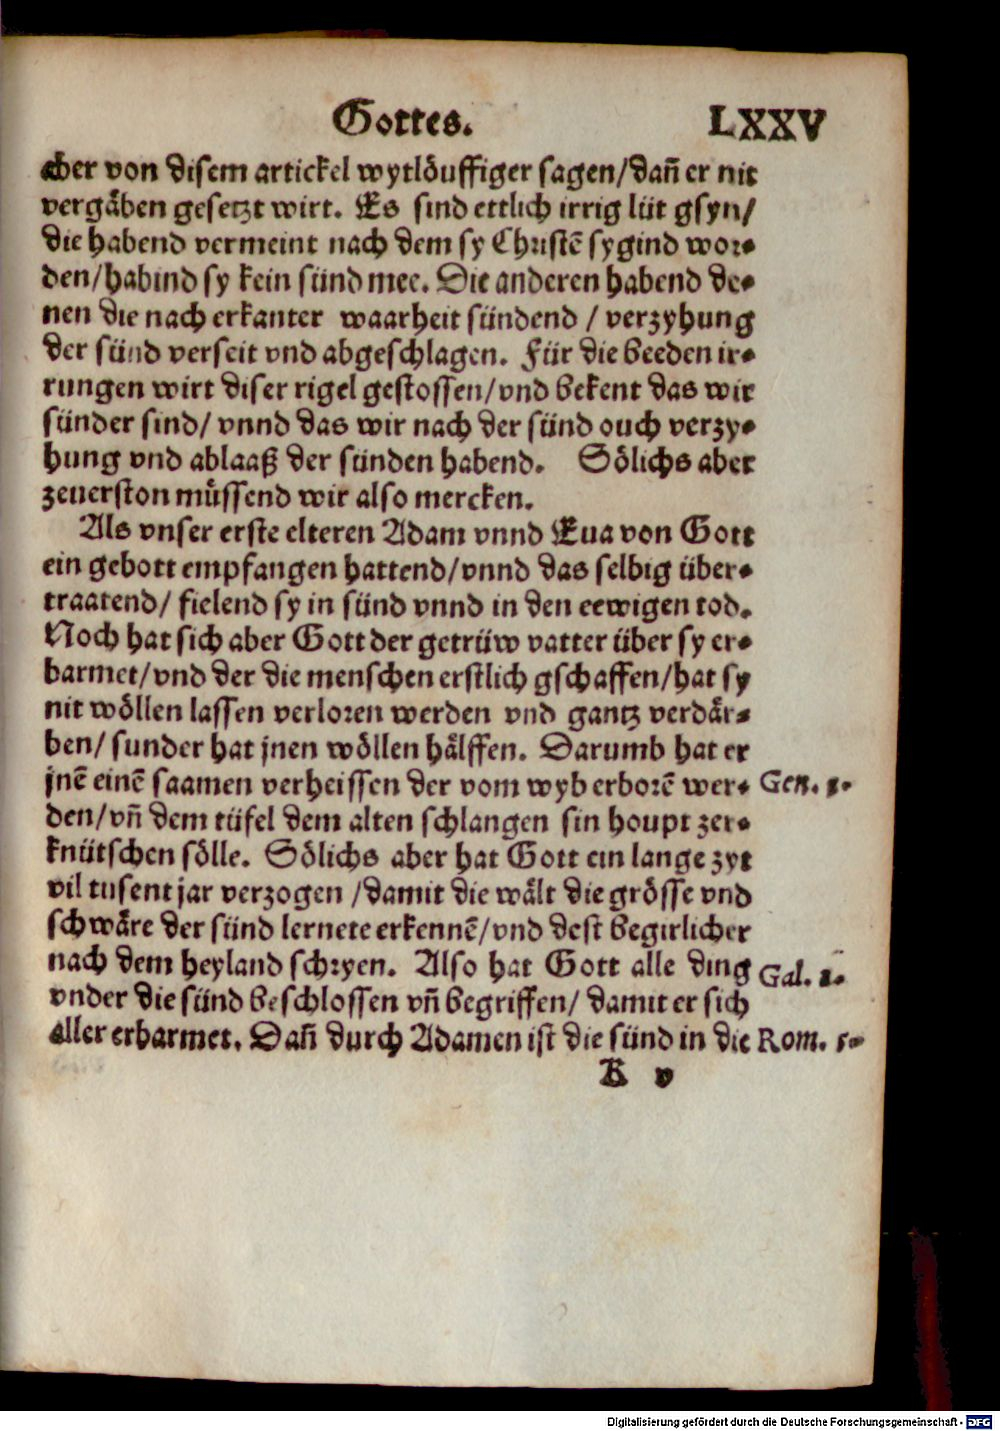 Gottes. LXXV
aber von disem artickel wytlöuffiger sagen/dañ er nit
vergäben gesetzt wirt. Es sind ettlich irrig lüt gsyn/
die habend vermeint nach dem sy Christẽ sygind wor-
den/habind sy kein sünd mee. Die anderen habend de-
nen die nach erkanter waarheit sündend / verzyhung
der sünd verseit vnd abgeschlagen. Für die beeden ir-
rungen wirt diser rigel gestossen/vnd bekent das wir
sünder sind/ vnnd das wir nach der sünd ouch verzy-
hung vnd ablaaß der sünden habend. Sölichs aber
zeuerston müssend wir also mercken.
Als vnser erste elteren Adam vnnd Eua von Gott
ein gebott empfangen hattend/vnnd das selbig über-
traatend/ fielend sy in sünd vnnd in den eewigen tod.
Noch hat sich aber Gott der getrüw vatter über sy er-
barmet/vnd der die menschen erstlich gschaffen/hat sy
nit wöllen lassen verloren werden vnd gantz verdär-
ben/ sunder hat jnen wöllen hälffen. Darumb hat er
jnẽ einẽ saamen verheissen der vom wyb erborẽ wer- Gen. 3.
den/vñ dem tüfel dem alten schlangen sin houpt zer-
knütschen sölle. Sölichs aber hat Gott ein lange zyt
vil tusent jar verzogen /damit die wält die grösse vnd
schwäre der sünd lernete erkennẽ/vnd dest begirlicher
nach dem heyland schryen. Also hat Gott alle ding
Gal. 3.
vnder die sünd beschlossen vñ begriffen/ damit er sich
aller erbarmet. Dañ durch Adamen ist die sünd in die Rom. 5.
K v
Digitalisierung gefördert durch die Deutsche Forschungsgemeinschaft - DFG